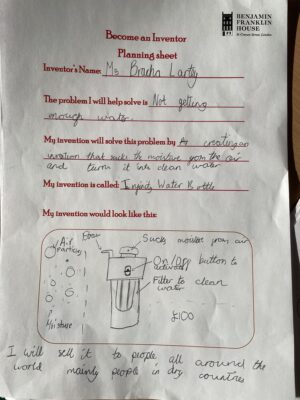 BENJAMIN
FRANKLIN
HOUSE
Become an Inventor
Planning sheet
Inventor's Name: Ms
The problem I will help solve is Not getting
enough water.
My invention will solve this problem by creating an
invention that sucks the moisture from the air
and turn it into clean water
My invention is called: Infinity Water Bottle
My invention would look like this:
Sucks moister from air
Air
particles
On/Off button to
Filter to clean
water
£100
Moisture
I will sell it to people all around the
world mainly people in dry countres